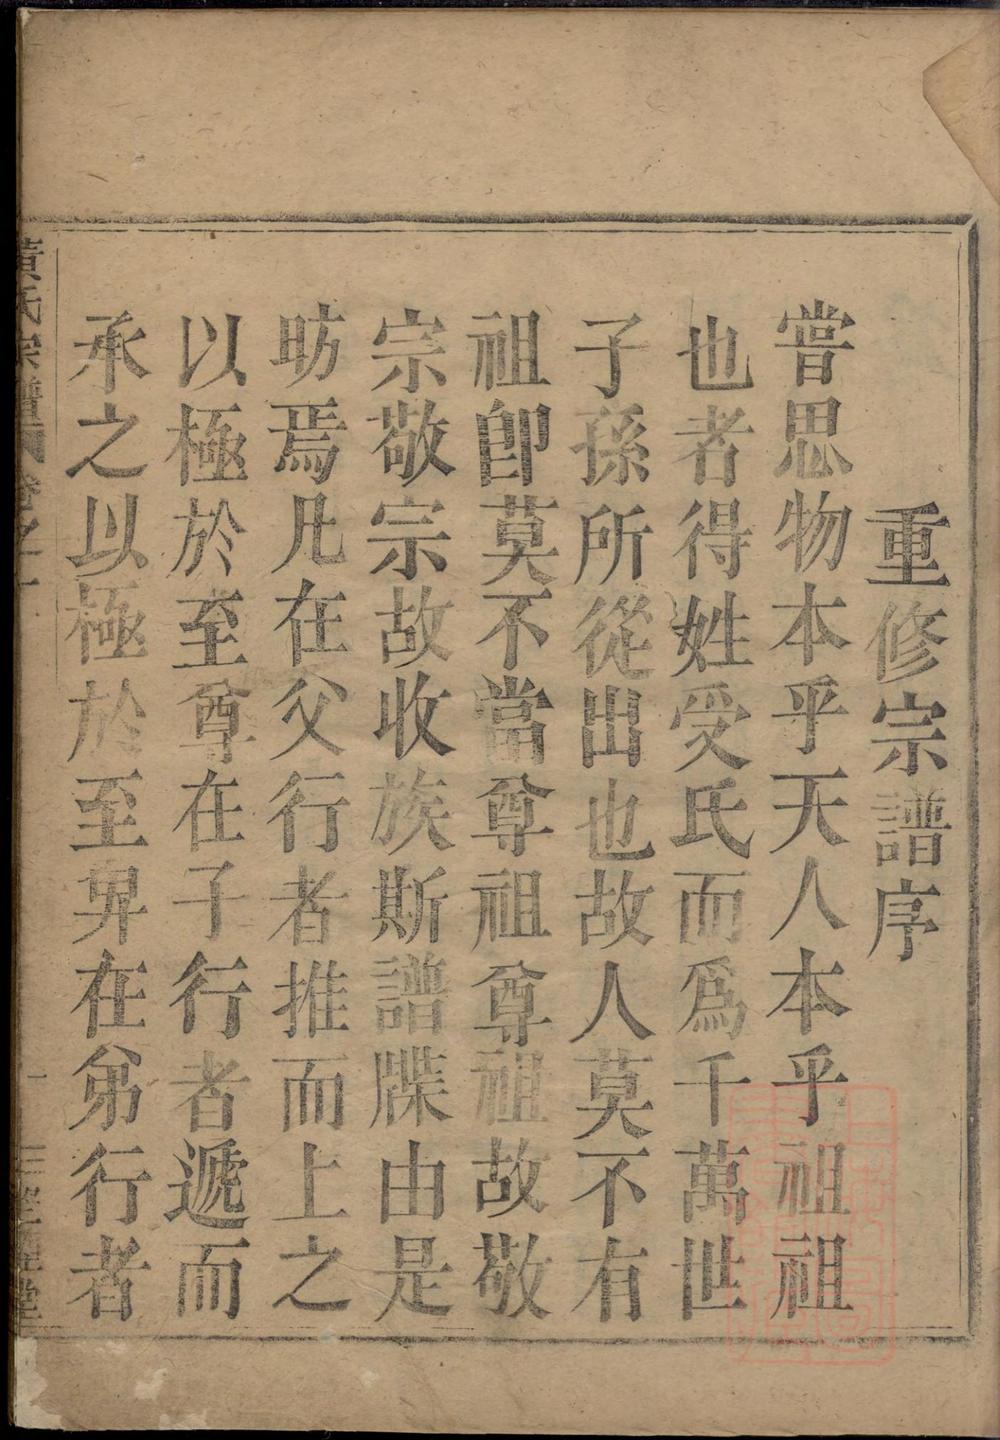 重修宗譜序
嘗思物本乎天人本乎祖祖
也者得姓受氏而爲千萬世
子孫所從出也故人莫不有
祖卽莫不當尊祖尊祖故敬
宗敬宗故收族斯譜牒由是
昉焉凡在父行者推而上之
以極於至尊在子行者遞而
承之以極於至畀在弟行者
黃氏宗譜 卷之一
一